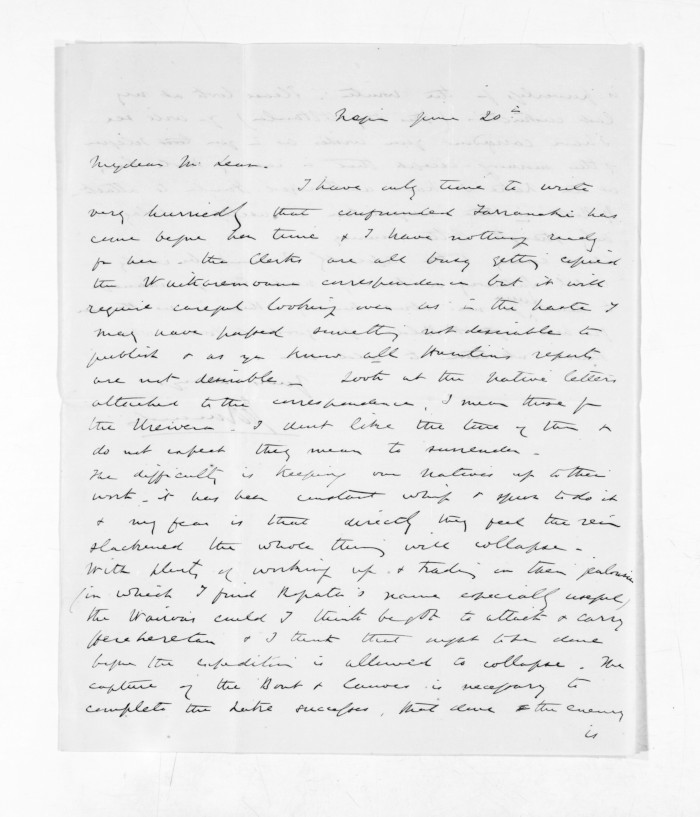 Napier June 20th
My dear Mr Lean.
I have only time to write
very hurriedly that confounded Tarranaki has
come before her time & I have nothing ready
for her - the Clerks are all busy getting copied
the Waikaremoana correspondence but it will
require careful looking over as in the haste I
may have passed something not desirable to
publish & as you know all Hamlins reports
are not desirable - Look at the Native letters
attached to the correspondence, I mean those fr
the Urewera - I dont like the tone of them &
do not expect they mean to surrender -
The difficulty is keeping our Natives up to their
work - it has been constant whip & spur to do it
& my fear is that directly they feel the rein
slackened the whole thing will collapse -
With plenty of working up & trading on their jealousies
(in which I find Ropata's name especially useful)
the Wairoas could I think be got to attack & carry
Herehereten & I think that ought to be done
before the expedition is allowed to collapse. The
capture of the Boat & Canoes is necessary to
complete the Lake successes, that done & the enemy
is